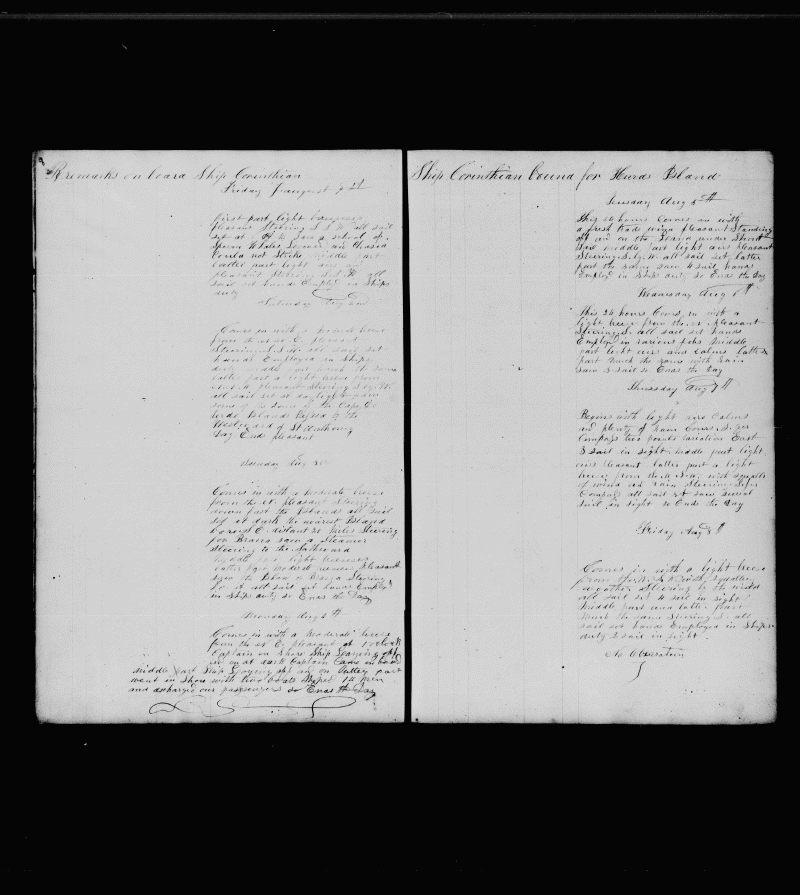 Remarks on board Ship Corinthian
Friday August 1st
First part light breezes
pleasant Steering S S W all sail
set at saw a school of
Sperm Whales Lowered and Chased
Could not Strike Middle part
latter part light and
pleasant Steering all
sail set hands Employed in Ships
duty
Saturday Aug 2nd
Comes in with a breeze
from the N E pleasant
Steering S S W all sail set
hands Employed in Ships
duty Middle part much the same
latter part a light breeze from
pleasant Steering
all sail set at daylight saw
some of the Cape De
Verds Islands Passed to the
Westward of St Anthony
Day Ends pleasant
Sunday Aug 3rd
Comes in with a Moderate breeze
from the N E pleasant Steering
down past the Islands all sail
set at dark the nearest Island
distant 20 miles Steering
for Brava saw a Steamer
Steering to the Northward
Middle part light breezes
latter part Moderate breezes Pleasant
saw the Island of Brava Steering
for it all sail set hands Employed
in Ships duty so Ends the Day
Monday Aug 4th
Comes in with a Moderate breeze
from the N E pleasant at 1 oclock
Captain on Shore Ship Laying off
and on at dark Captain Came on board
Middle part Ship Laying off and on latter part
went in Shore with two boats Shiped 14 men
and discharged our passengers so Ends the Day
Ship Corinthian bound for Hurds Island
Tuesday Aug 5th
This 24 hours Comes in with
a fresh trade wind pleasant Standing
off and on the Island under Short
Sail Middle part light airs pleasant
Steering S by W all sail set latter
part the same saw 4 sail hands
Employed in Ships duty so Ends the Day
Wednesday Aug 6th
This 24 hours Comes in with a
light breeze from the pleasant
Steering S. all sail set hands
Employed in various jobs Middle
part light airs and Calms latter
part Much the same with rain
Saw 3 Sail so Ends the Day
Thursday Aug 7th
Begins with light airs Calms
and plenty of rain Course S. per
Compass two points variation East
3 sail in sight Middle part light
airs pleasant latter part a light
breeze from the with squalls
of wind and rain Steering S. per
Compass all sail set saw several
sail in sight so Ends the Day
Friday Aug 8th
Comes in with a light breeze
from the with squally
weather Steering to the
all sail set 4 sail in sight
Middle part and latter part
Much the same Steering S. all
sail set hands Employed in Ships
duty 2 sail in sight
No Observation